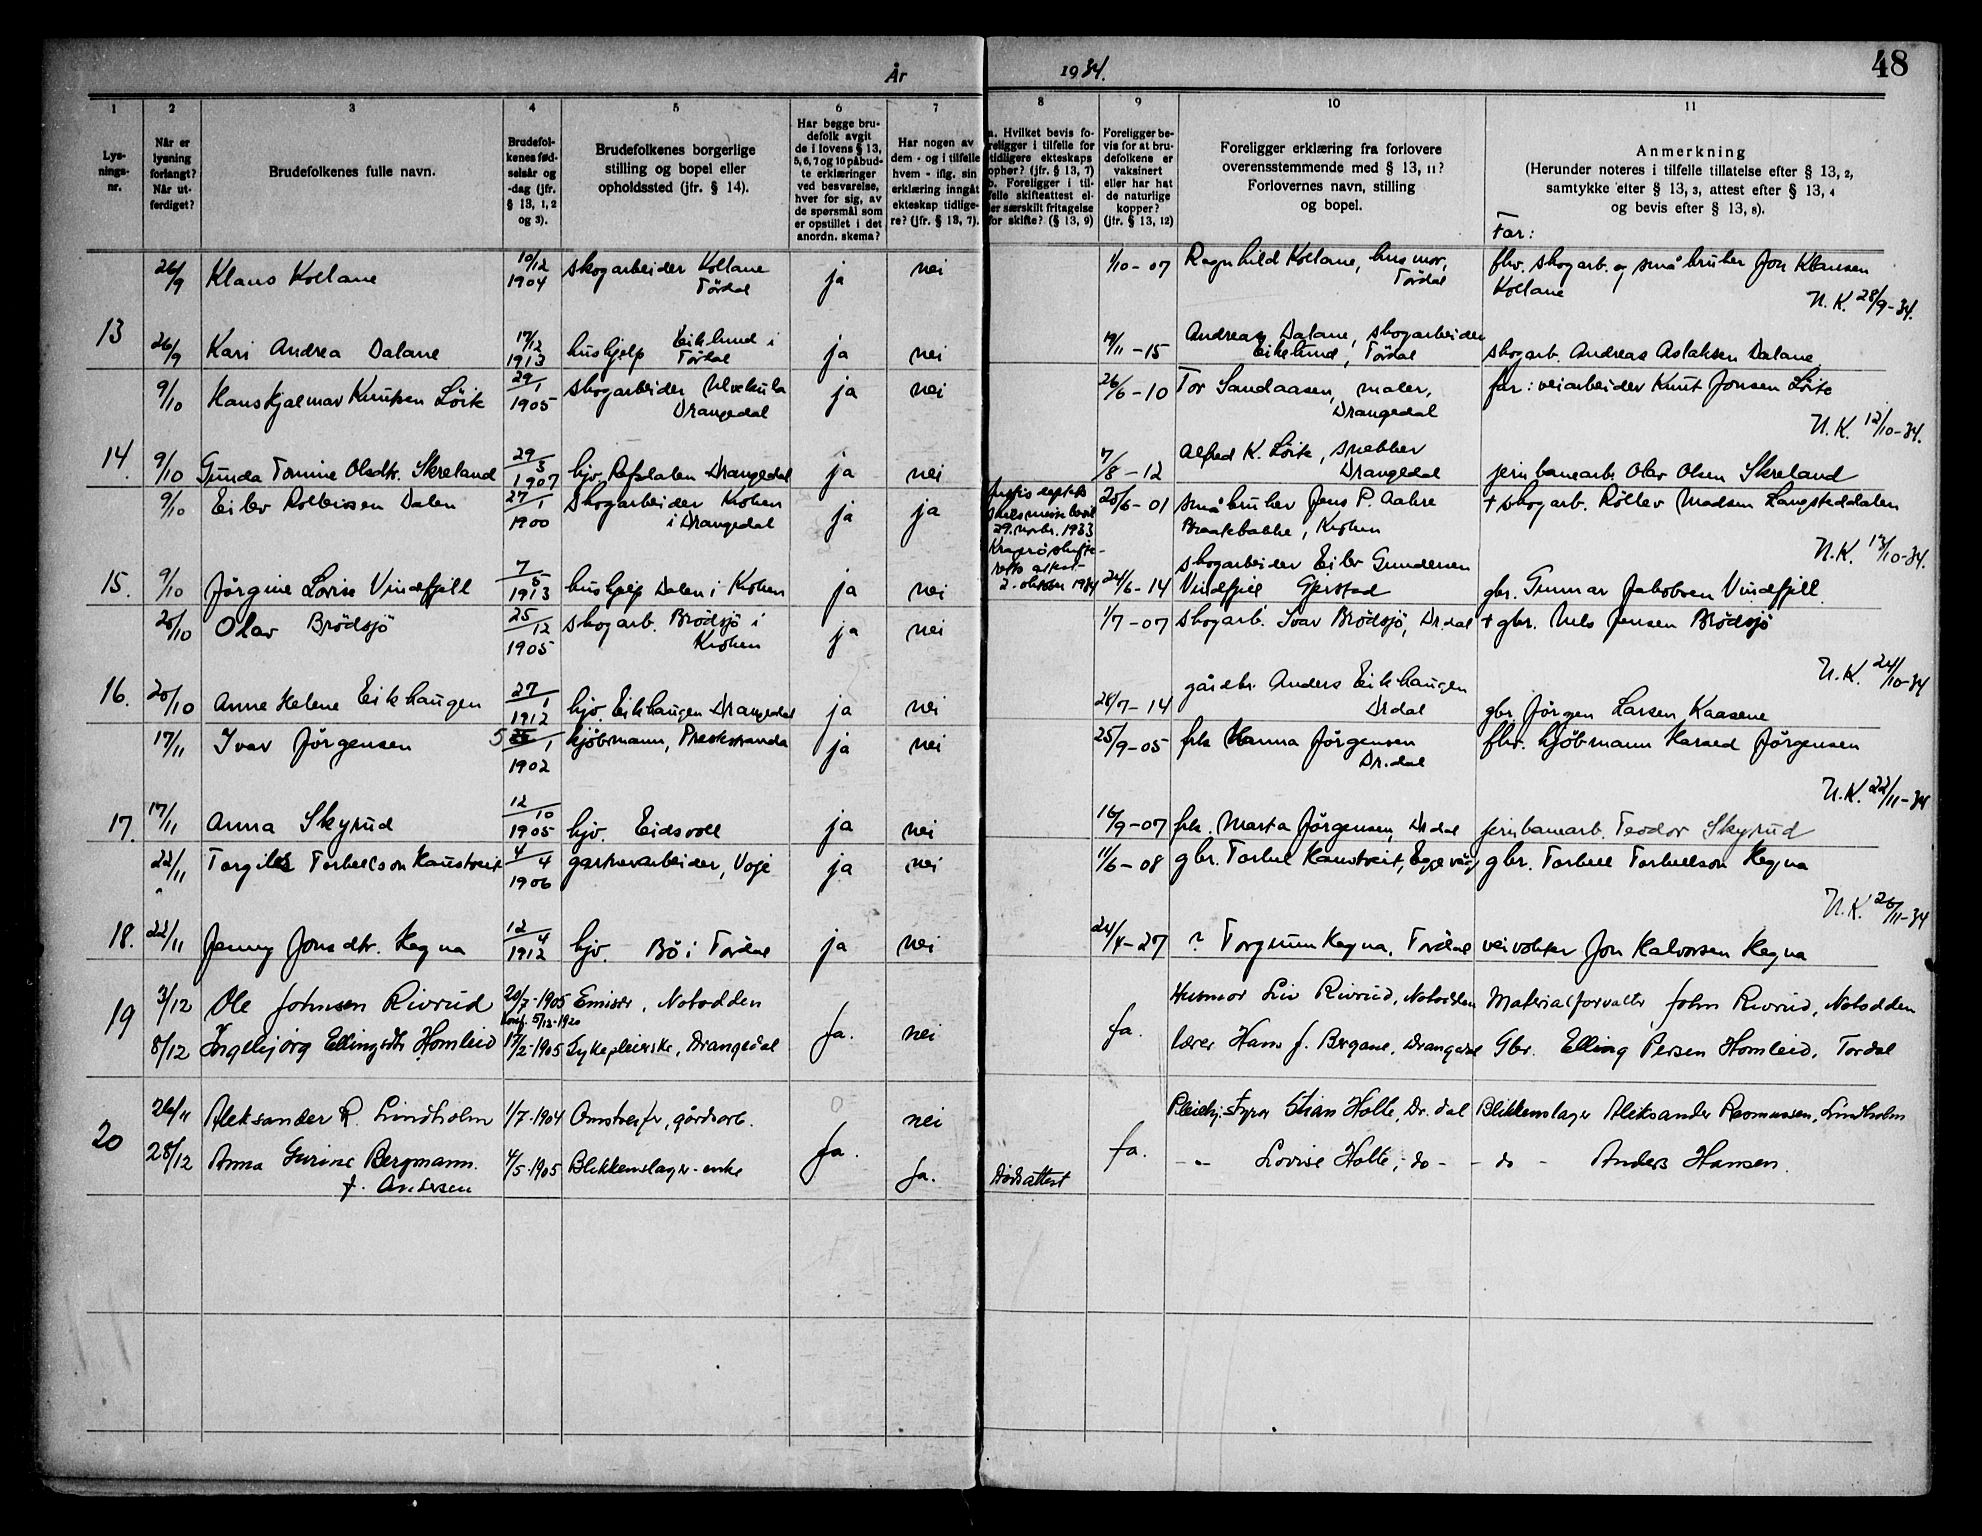 År 1934.
48
1 2 3 4 5 6 7 8 9 10 11
Lys-
nings-
nr.
Når er
lysning
forlangt?
Når ut-
ferdiget?
Brudefolkenes fulle navn.
Brudefol-
kenes fød-
selsår og
-dag (jfr.
§ 13, 1, 2
og 3).
Brudefolkenes borgerlige
stilling og bopel eller
opholdssted (jfr. § 14).
Har begge bru-
defolk avgit
de i lovens § 13,
5, 6, 7 og 10 påbud-
te erklæringer
ved besvarelse,
hver for sig, av
de spørsmål som
er opstillet i det
anordn. skema?
Har nogen av
dem - og i tilfelle
hvem - iflg. sin
erklæring inngått
ekteskap tidlige-
re? (jfr. § 13, 7).
a. Hvilket bevis fo-
religger i tilfelle for
tidligere ekteskaps
ophør? (jfr. § 13, 7)
b. Foreligger i til-
felle skifteattest el-
ler særskilt fritagelse
for skifte? (§ 13, 9)
Foreligger be-
vis for at bru-
defolkene er
vaksinert
eller har hat
de naturlige
kopper?
(jfr. § 13, 12)
Foreligger erklæring fra forlovere
overensstemmende med § 13, 11?
Forlovernes navn, stilling
og bopel.
Anmerkning
(Herunder noteres i tilfelle tillatelse efter § 13, 2,
samtykke efter § 13, 3, attest efter § 13, 4
og bevis efter § 13, 8).
Far:
26/9 Klaus Kollane 10/12 1904 skogarbeider Kollane Tördal ja nei 1/10-07 Ragnhild Kollane, husmor, Tördal fhv. skogarb. og småbruker Jon Klausen Kollane
N.K. 28/9-34.
13 26/9 Kari Andrea Dalane 17/12 1913 hushjelp Eiklund i Tördal ja nei 19/11-15 Andreas Dalane, skogarbeider Eiklund, Tördal skogarb. Andreas Aslaksen Dalane
9/10 Hans Hjalmar Knutsen Löite 29/1 1905 skogarbeider Drangedal ja nei 26/6-10 Tor Sandaasen, maler, Drangedal far: veiarbeider Knut Jonsen Löite
N.K. 12/10-34.
14. 9/10 Gunda Tomine Olsdtr. Skreland 29/3 1907 hjv. Drangedal ja nei 7/8-12 Alfred K. Löite, snekker Drangedal jernbanearb. Olav Olsen Skreland
9/10 Eilev Rollevsen Dalen 27/1 1900 skogarbeider Kroken i Drangedal ja ja
29. novbr. 1933
Kragerö skifte-
retts attest
2. oktober 1934
25/6-01 småbruker Jens P. Aakre Braatebakke, Kroken + skogarb. Rollev Madsen Langsteddalen
N.K. 13/10-34.
15. 9/10 Jörgine Lovise Vindfjell 7/5 1913 hushjelp Dalen i Kroken ja nei 24/6-14 skogarbeider Eilev Gundersen Vindfjell Gjerstad gbr. Gunnar Jakobsen Vindfjell
20/10 Olav Brödsjö 25/12 1905 skogarb. Brödsjö i Kroken ja nei 1/7-07 skogarb. Ivar Brödsjö, Drdal + gbr. Nils Jensen Brödsjö
N.K. 24/10-34
16. 20/10 Anne Helene Eikhaugen 27/1 1912 hjv. Eikhaugen Drangedal ja nei 28/7-14 gårdbr. Anders Eikhaugen Drdal gbr. Jörgen Larsen Kaasene
17/11 Ivar Jörgensen 5/1 1902 kjöbmann, Prestestranda ja nei 25/9-05 frk Hanna Jörgensen Dr.dal fhv. kjöbmann Harald Jörgensen
N.K. 22/11-34
17. 17/11 Anna Skyrud 12/10 1905 hjv. Eidsvoll ja nei 16/9-07 frk. Marta Jörgensen, Drdal jernbanearb. Teodor Skyrud
22/11 Torgils Torkellson Haustveit 4/4 1906 gartnerarbeider, Voje ja nei 11/6-08 gbr. Torkel Haustveit, gbr. Torkell Torkellson Hegna
N.K. 26/11-34
18. 22/11 Jenny Jonsdtr. Hegna 12/4 1912 hjv. Bö i Tördal ja nei 24/4-27 ? Torgrim Hegna, Tördal veivokter Jon Halvorsen Hegna
19 3/12 Ole Johnsen Rivrud 20/7-1905 Emisær, Notodden Husmor Liv Rivrud, Notodden Materialforvalter John Rivrud, Notodden
Konf. 5/12-1920
8/12 Ingebjørg Ellingsdtr Homleid 17/2-1905 Sykepleierske, Drangedal Ja. nei Ja. Lærer Hans J. Bergane, Drangedal Gbr. Elling Persen Homleid, Tørdal
20 26/11 Aleksander R. Lindholm 1/7-1904 Omstreifer, gårdsarb. nei Pleiehj. styrer Stian Holte, Dr.dal Blikkenslager Aleksander Rasmussen, Lindholm
28/12 Anna Gurine Bergmann. 4/5-1905 Blikkenslager-enke Ja. Ja. Dødsattest Ja. -"- Lovise Holte, -do- -do- Anders Hansen.
f. Andersen